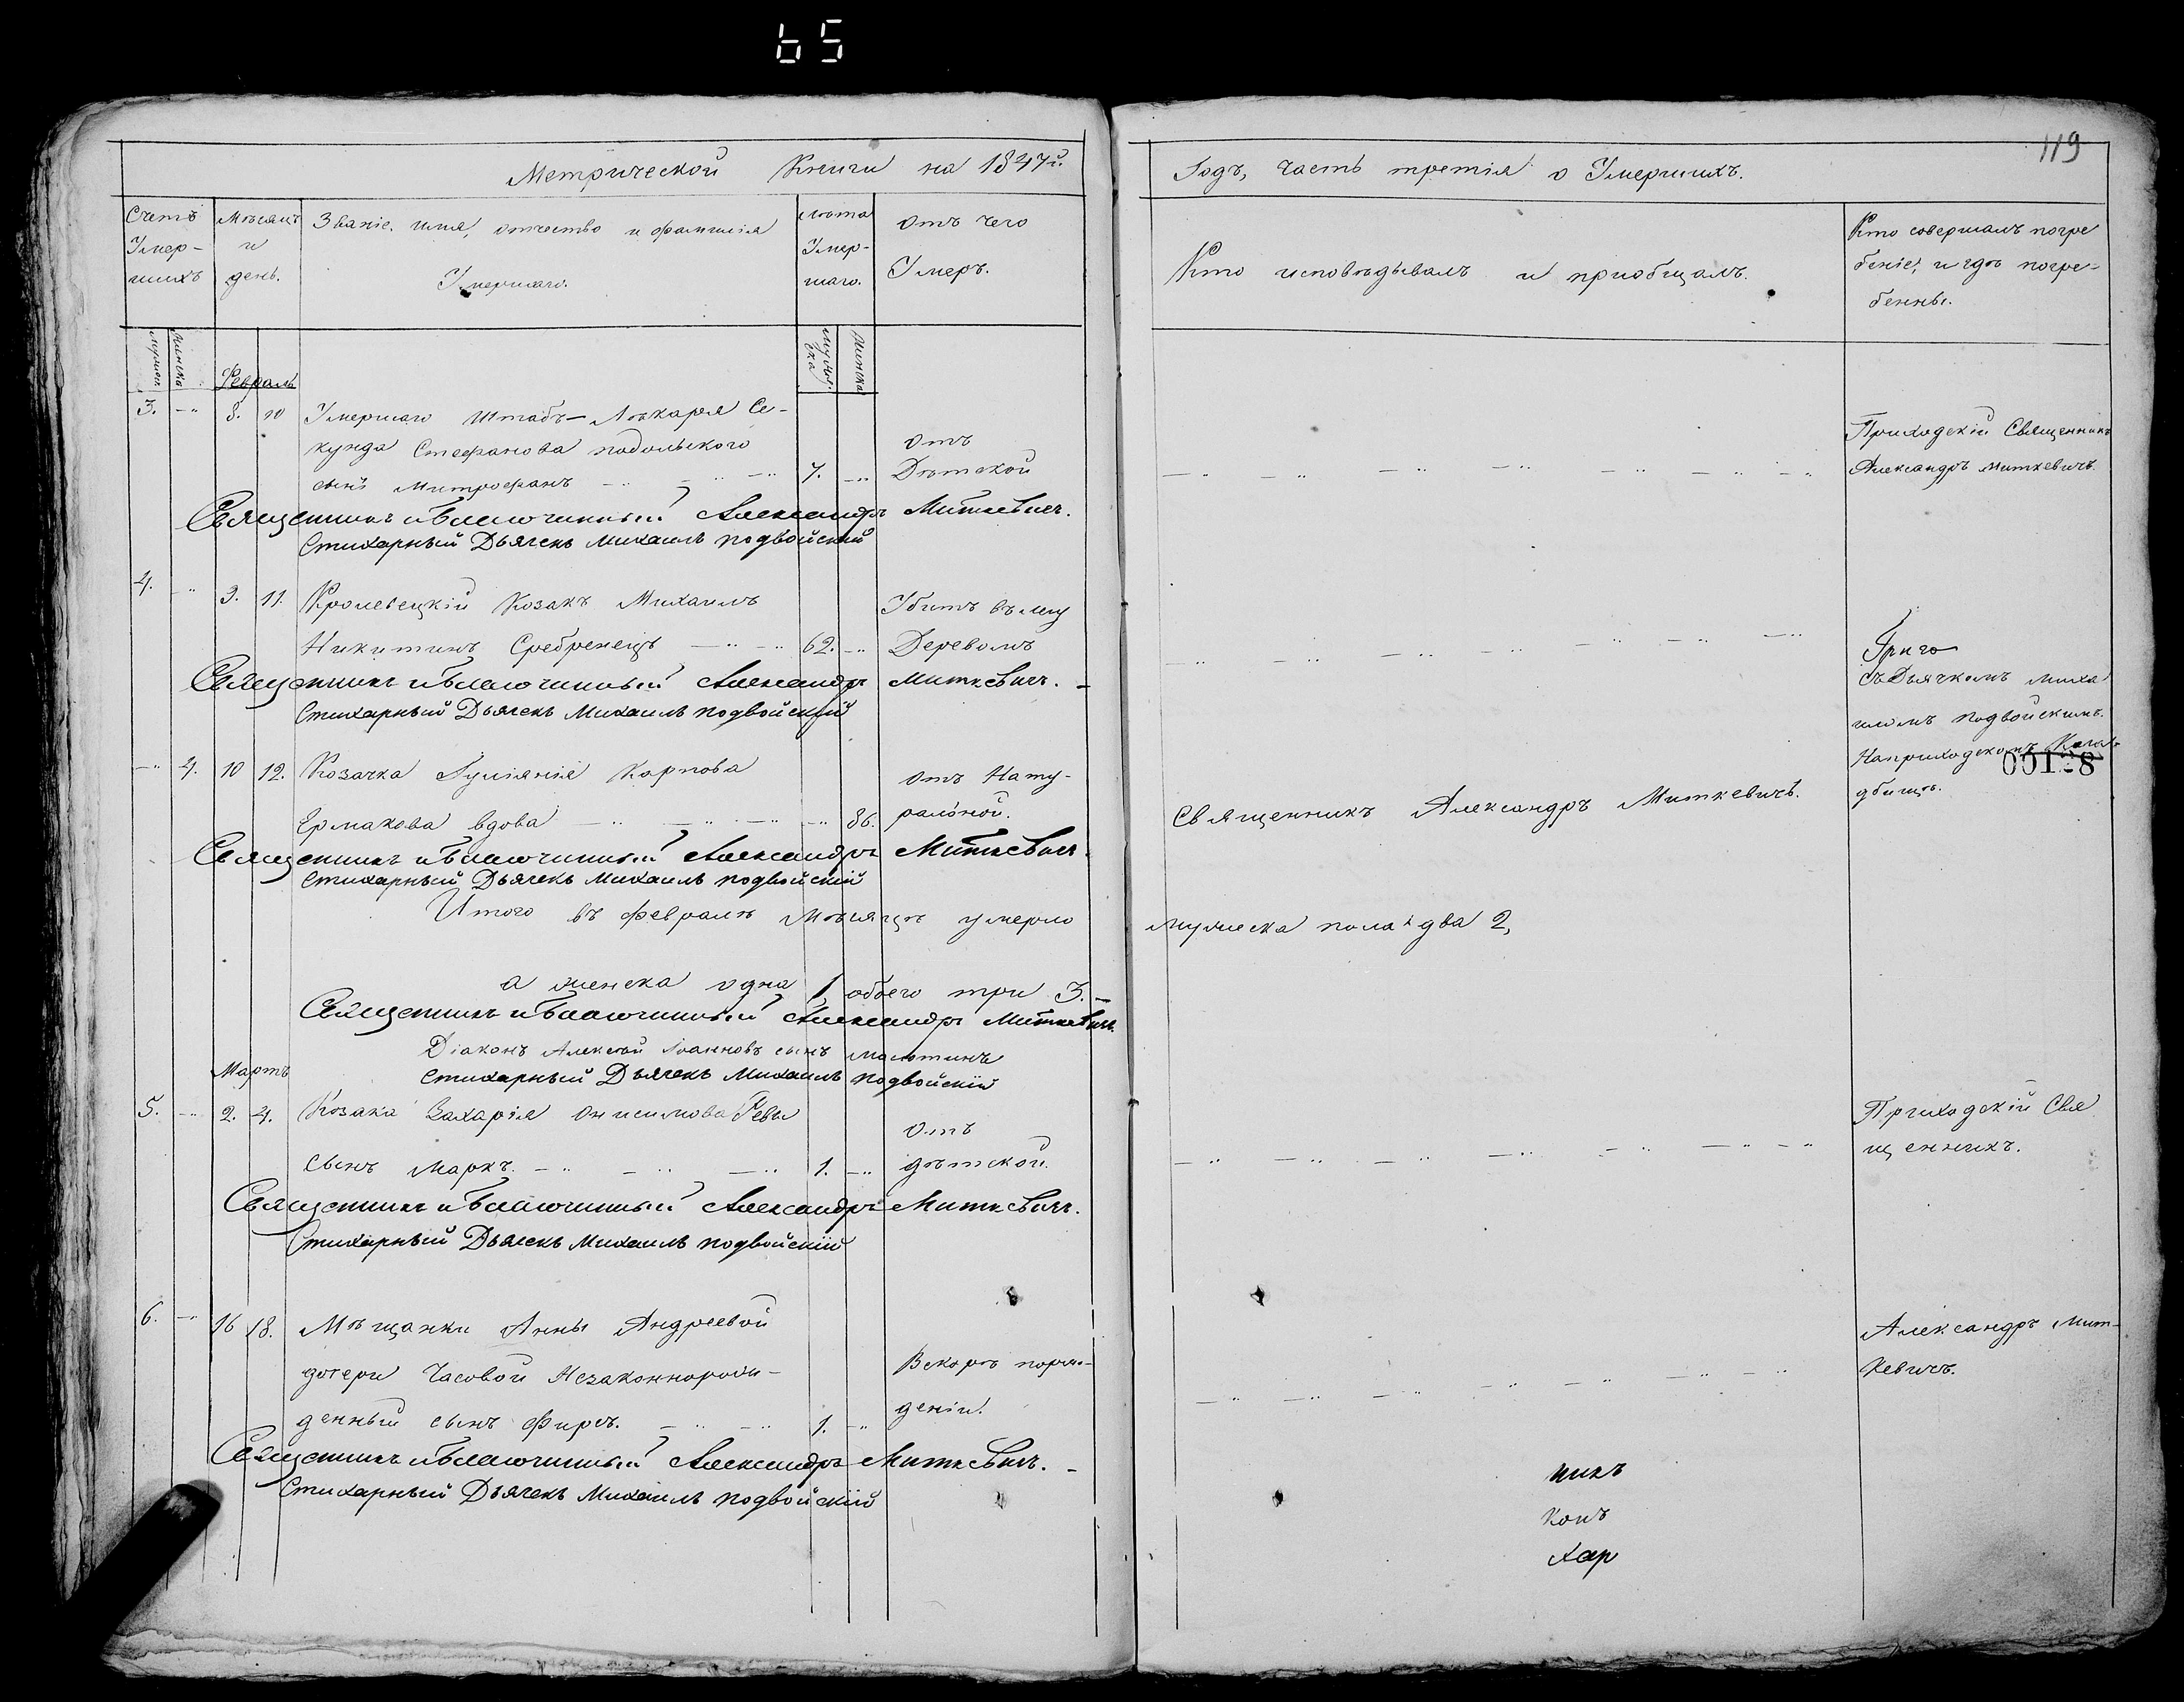 65
119
Метрической Книги на 1847й.
Годъ, часть третія о Умершихъ.
Счетъ Умер- шихъ
Мѣсяцъ и день.
Званіе, имя, отчество и фамилія Умершаго.
Лѣта Умер- шаго.
Отъ чего Умеръ.
Кто исповѣдывалъ и пріобщалъ.
Кто совершалъ погре
беніе, и гдѣ погре-
бенны.
Женска
Женска
Февраль
3. 8. 10 Умершаго Штабъ-Лѣкаря Се-
кунда Стефанова подольского Отъ
сынъ Митрофанъ 7. Дѣтской
Приходскій Священникъ
Александръ Миткевичъ.
Священникъ и Благочинный Александръ Миткевичъ.
Стихарный Дьячекъ Михаилъ подвойский
4. 9. 11. Кролевецкій Козакъ Михаилъ Убитъ въ лесу
Никитинъ Сребренецъ 62. Деревомъ
Григо
съ Дьячкомъ миха
иломъ подвойскимъ.
Священникъ и Благочинный Александръ Миткевичъ.
Стихарный Дьячекъ Михаилъ подвойский
4. 10 12. Козачка Гуліянія Карпова отъ Нату-
Ермакова вдова 86. ральной.
Священникъ Александръ Миткевичъ.
Наприходскомъ Кла
дбищѣ.
00128
Священникъ и Благочинный Александръ Миткевичъ.
Стихарный Дьячекъ Михаилъ подвойскій
Итого въ Февралѣ Мѣсяцѣ умерло
мужеска пола два 2,
а женска одна 1, обоего три 3.
Священникъ и Благочинный Александръ Миткевичъ.
Діаконъ Алексѣй Іоанновъ сынъ
Стихарный Дьячекъ Михаилъ подвойскій
Мартъ
5. 2. 4. Козака Захарія Онисимова Ревы Отъ
сынъ Маркъ. 1. дѣтской.
Приходскій Свя
щенникъ.
Священникъ и Благочинный Александръ Миткевичъ.
Стихарный Дьячекъ Михаилъ подвойскій
6. 16 18. Мѣщанки Анны Андреевой
дочери Часовой Незаконнорож- Вскорѣ порож-
денный сынъ Фирсъ. 1. деніи.
Александръ Мит-
кевичъ.
Священникъ и Благочинный Александръ Миткевичъ.
Стихарный Дьячекъ Михаилъ подвойскій
никъ
конъ
хар